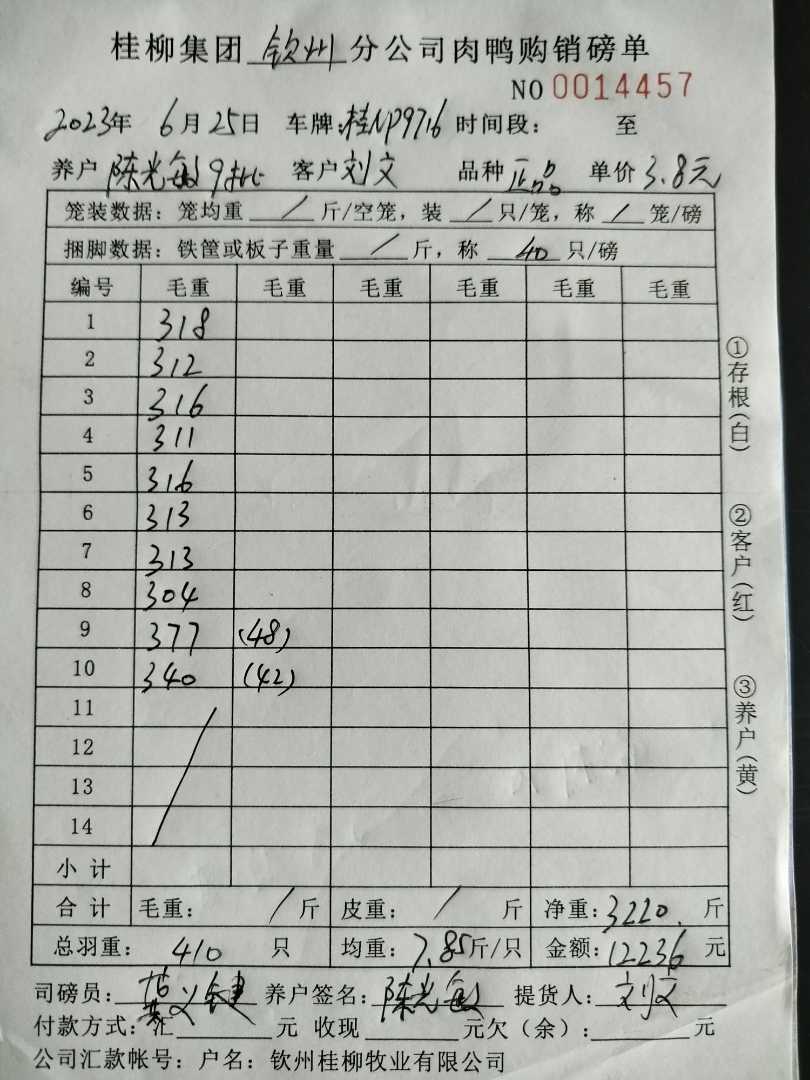 桂柳集团 钦州 分公司肉鸭购销磅单
NO 0014457
2023年 6月25日 车牌:桂NP9716 时间段: 至
养户 陈光敏9批 客户 刘文 品种 正品 单价 3.8元
笼装数据:笼均重 / 斤/空笼,装 / 只/笼,称 / 笼/磅
捆脚数据:铁筐或板子重量 / 斤,称 40 只/磅
编号 毛重 毛重 毛重 毛重 毛重 毛重
1 318
2 312
3 316
4 311
5 316
6 313
7 313
8 304
9 377 (48)
10 340 (42)
11
12
13
14
小计
合计 毛重: / 斤 皮重: / 斤 净重:3220.斤
总羽重: 410 只 均重:7.85斤/只 金额:12236元
司磅员: 养户签名:陈光敏 提货人:刘文
付款方式:汇 元 收现 元欠(余): 元
公司汇款帐号:户名:钦州桂柳牧业有限公司
①存根(白)
②客户(红)
③养户(黄)